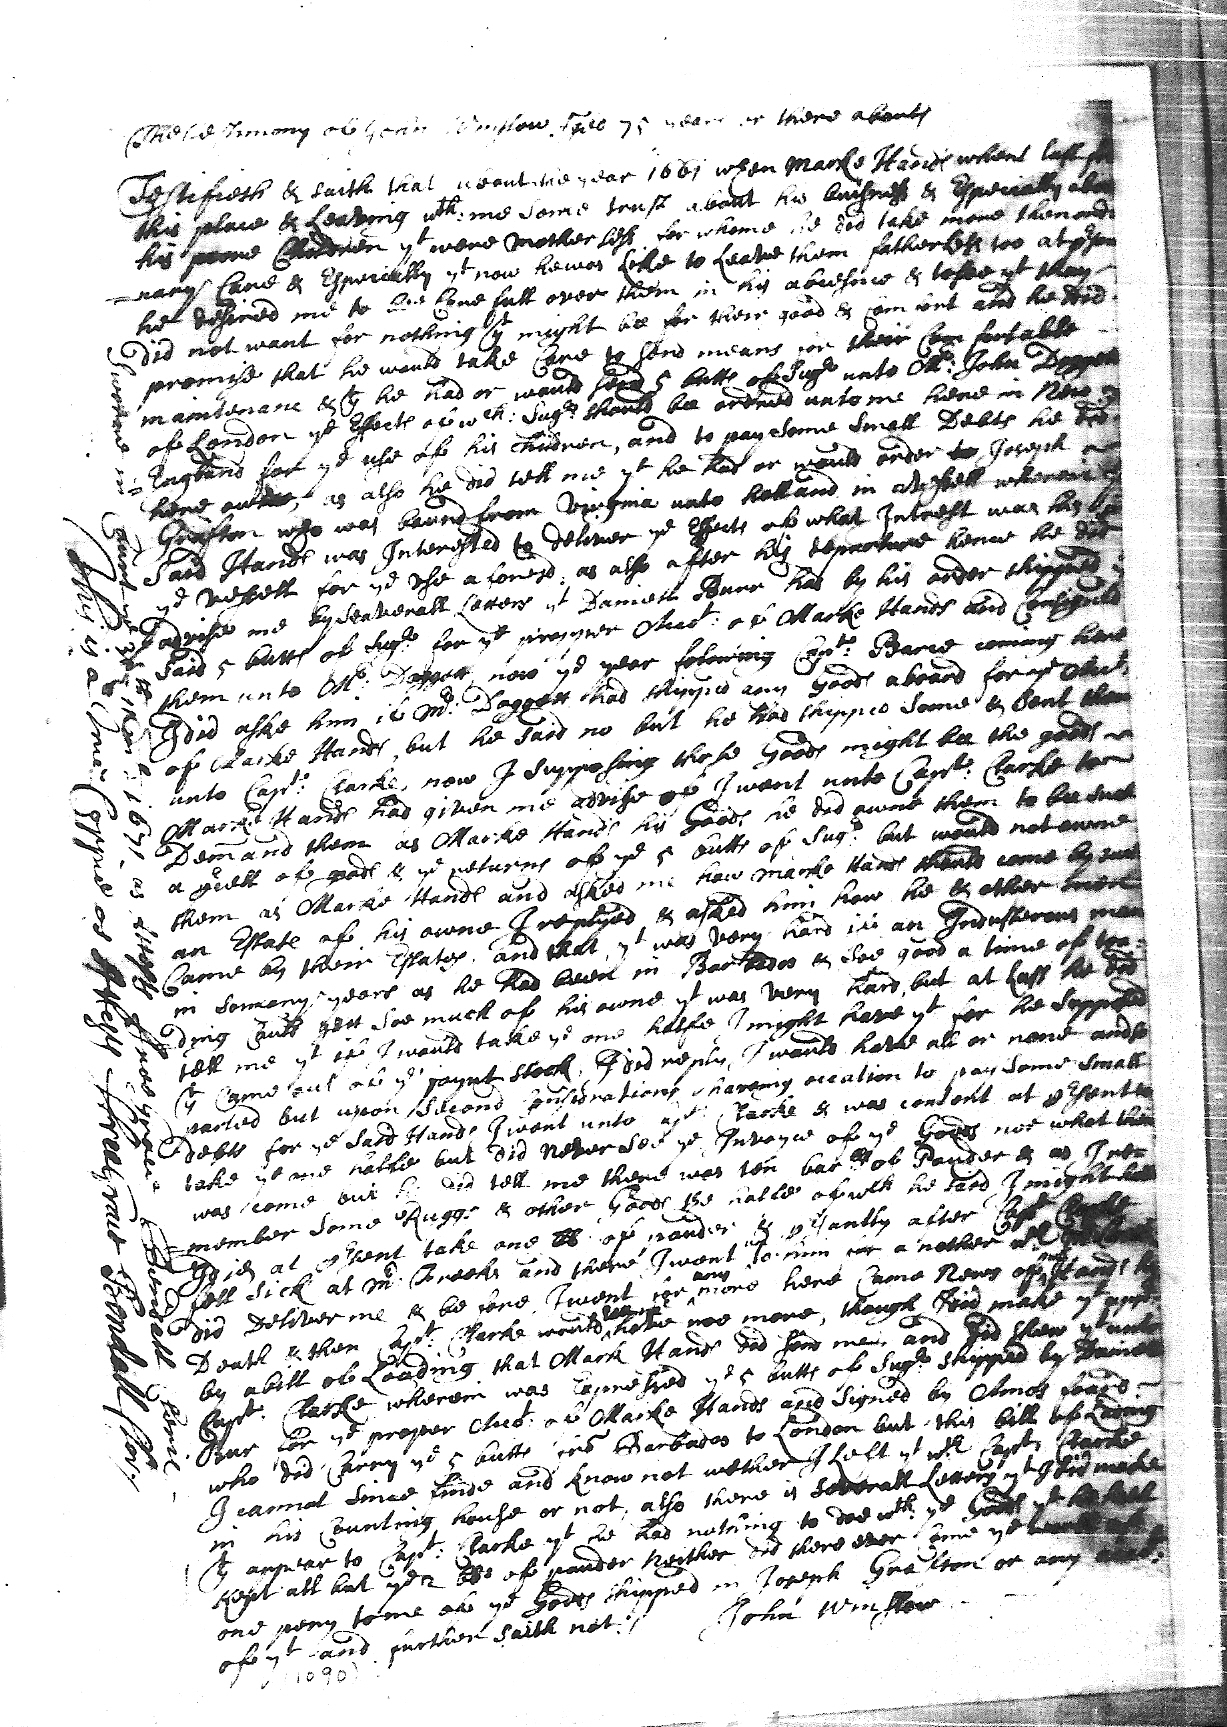 The testimony of John Winslow Aged 75 years or there abouts
Testifieth & saith that about the year 1661 when Marke Hands whent last
this place & Leaving wth: me some trust about his buisness & Especially
his Children yt were motherless for whome he did take more then ordi
=nary Care & Especially yt now he was Like to Leave them fatherless too at
he desired me to be Carefull over them in his absence & to see yt they
did not want for nothing yt might be for their good & Comfort and he did
promise that he would take Care to send means for their Comfortable
maintenance & yt he had or would send 5 butts of Sugr unto Mr: John Doggett
of London ye Effects of wch: Sugr: should be ordred unto me here in New
England for ye use of his Children, and to pay some small Debts he did
here owe, as also he did tell me yt he had or would order to Joseph
Grafton who was bound from Virginia unto holland in a Vessell wherein ye
Said Hands was Interested to deliver ye Effects of what Intrest was his
ye vessell for ye use aforesd: as also after his departure hence he did
advise me by severall Letters yt Daniell Burr had by his order shipped
Said 5 butts of Sugr: for ye propper Acct: of Marke Hands and Consigned
them unto Mr: Doggett, now ye year following Capt: Barce coming here
I did aske him if Mr: Doggett had shipped any Goods aboard for ye Acct:
of Marke Hands, but he said no but he had shipped some & sent them
unto Capt: Clarke, now I supposing those Goods might be the goods
Marke Hands had given me advise of I went unto Capt: Clarke to
Demand them as Marke Hands his Goods he did owne them to be such
a of goods & ye returns of ye 5 butts of Sugr: but would not owne
them as Marke Hands and asked me how Marke Hands should come by such
an Estate of his owne I replyed & asked him how he & other men
Came by their Estates, and that yt was very hard if an Industerous man
in so many years as he had been in Barbados & soe good a time of tra=
ding Could gett soe much of his owne yt was very hard, but at last he did
tell me yt if I would take ye one halfe I might have yt for he supposed
yt Came out of ye joynt stock, I did reply I would have all or none and so
parted but upon second Considerations, having occation to pay some small
Debts for ye said Hands I went unto Capt: Clarke & was content at present to
take ye one halfe but did never see ye Invoyce of ye Goods nor what there
was come but he did tell me there was ten bar lls of Pouder & as I re=
=member some Ruggs & other Goods the halfe of wch he said I might have
I did at present take one of pouder & presantly after Capt: Clarke
fell sick at Mr: Brooks and there I went to him for another wch
did Deliver me & before I went for any more here Came News of Mr Hands his
Death & then Capt: Clarke would Lett me have noe more, though I did make yt appr:
by a bill of Loading that Mark Hands did send me and did shew yt unto
Capt: Clarke wherein was Expressed ye 5 butts of Sugr: shipped by Daniell
Burr for ye proper Acct: of Marke Hands and signed by Amos foard
who did Carry ye 5 butts from Barbados to London but this bill of Loading
I cannot since finde and know not wether I Left yt wth Capt: Clarke
in his Counting house or not, also there is severall Letters yt I did make
yt appear to Capt: Clarke yt he had nothing to doe wth: ye Goods yt he hath
kept all but ye 2 of pouder Neither did there ever Come ye
one peny to me of ye Goods shipped in Joseph Grafton or any
of yt and further saith not:/ John Winslow
(1090)
Sworne in Court
1671, as Attests free grace Bendall Cleric
This is a true Coppie as Attests freegrace Bendall Cler: